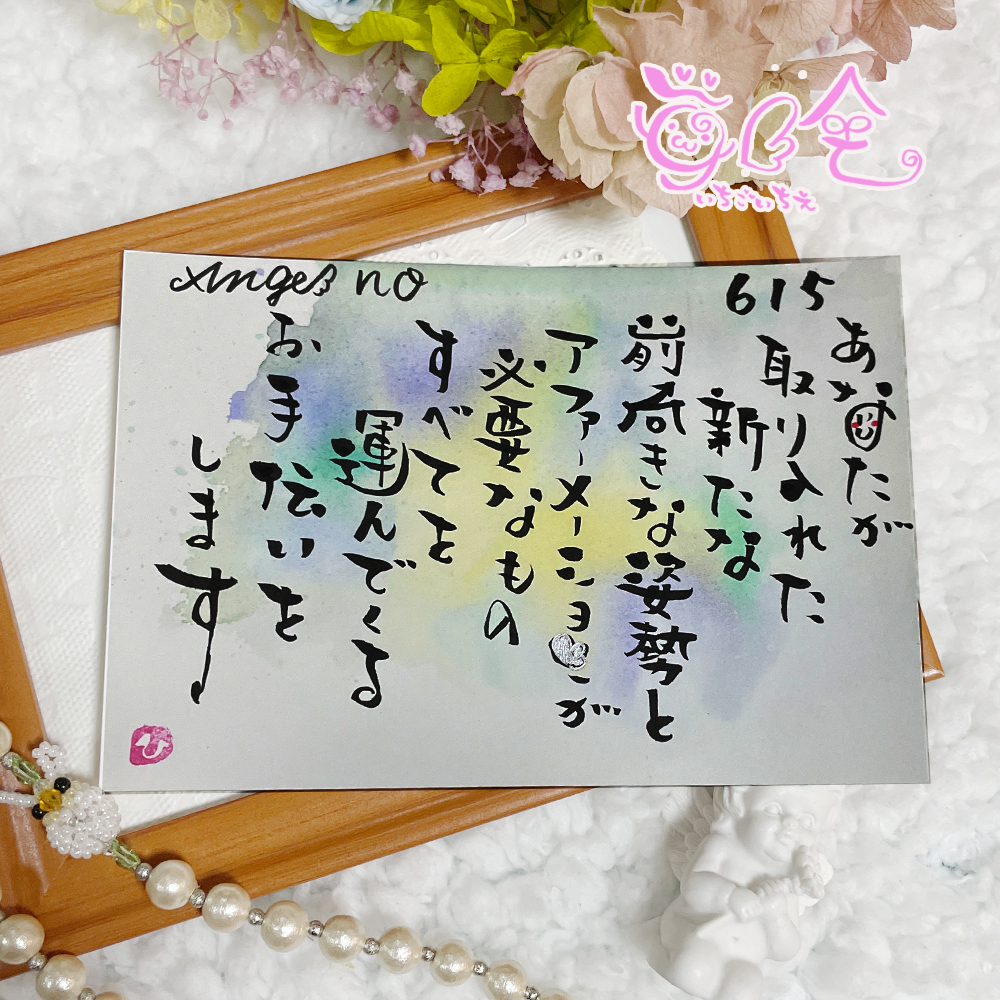 いちごいちえ
Angel no
615
あなたが
取り入れた
新たな
前向きな姿勢と
アファーメーションが
必要なもの
すべてを
運んでくる
お手伝いを
します